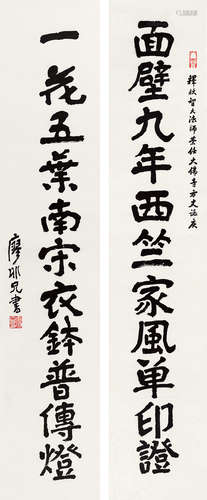 面壁九年西竺家風单印證
一花五葉南宗衣鉢普傳燈
廖耶兄書